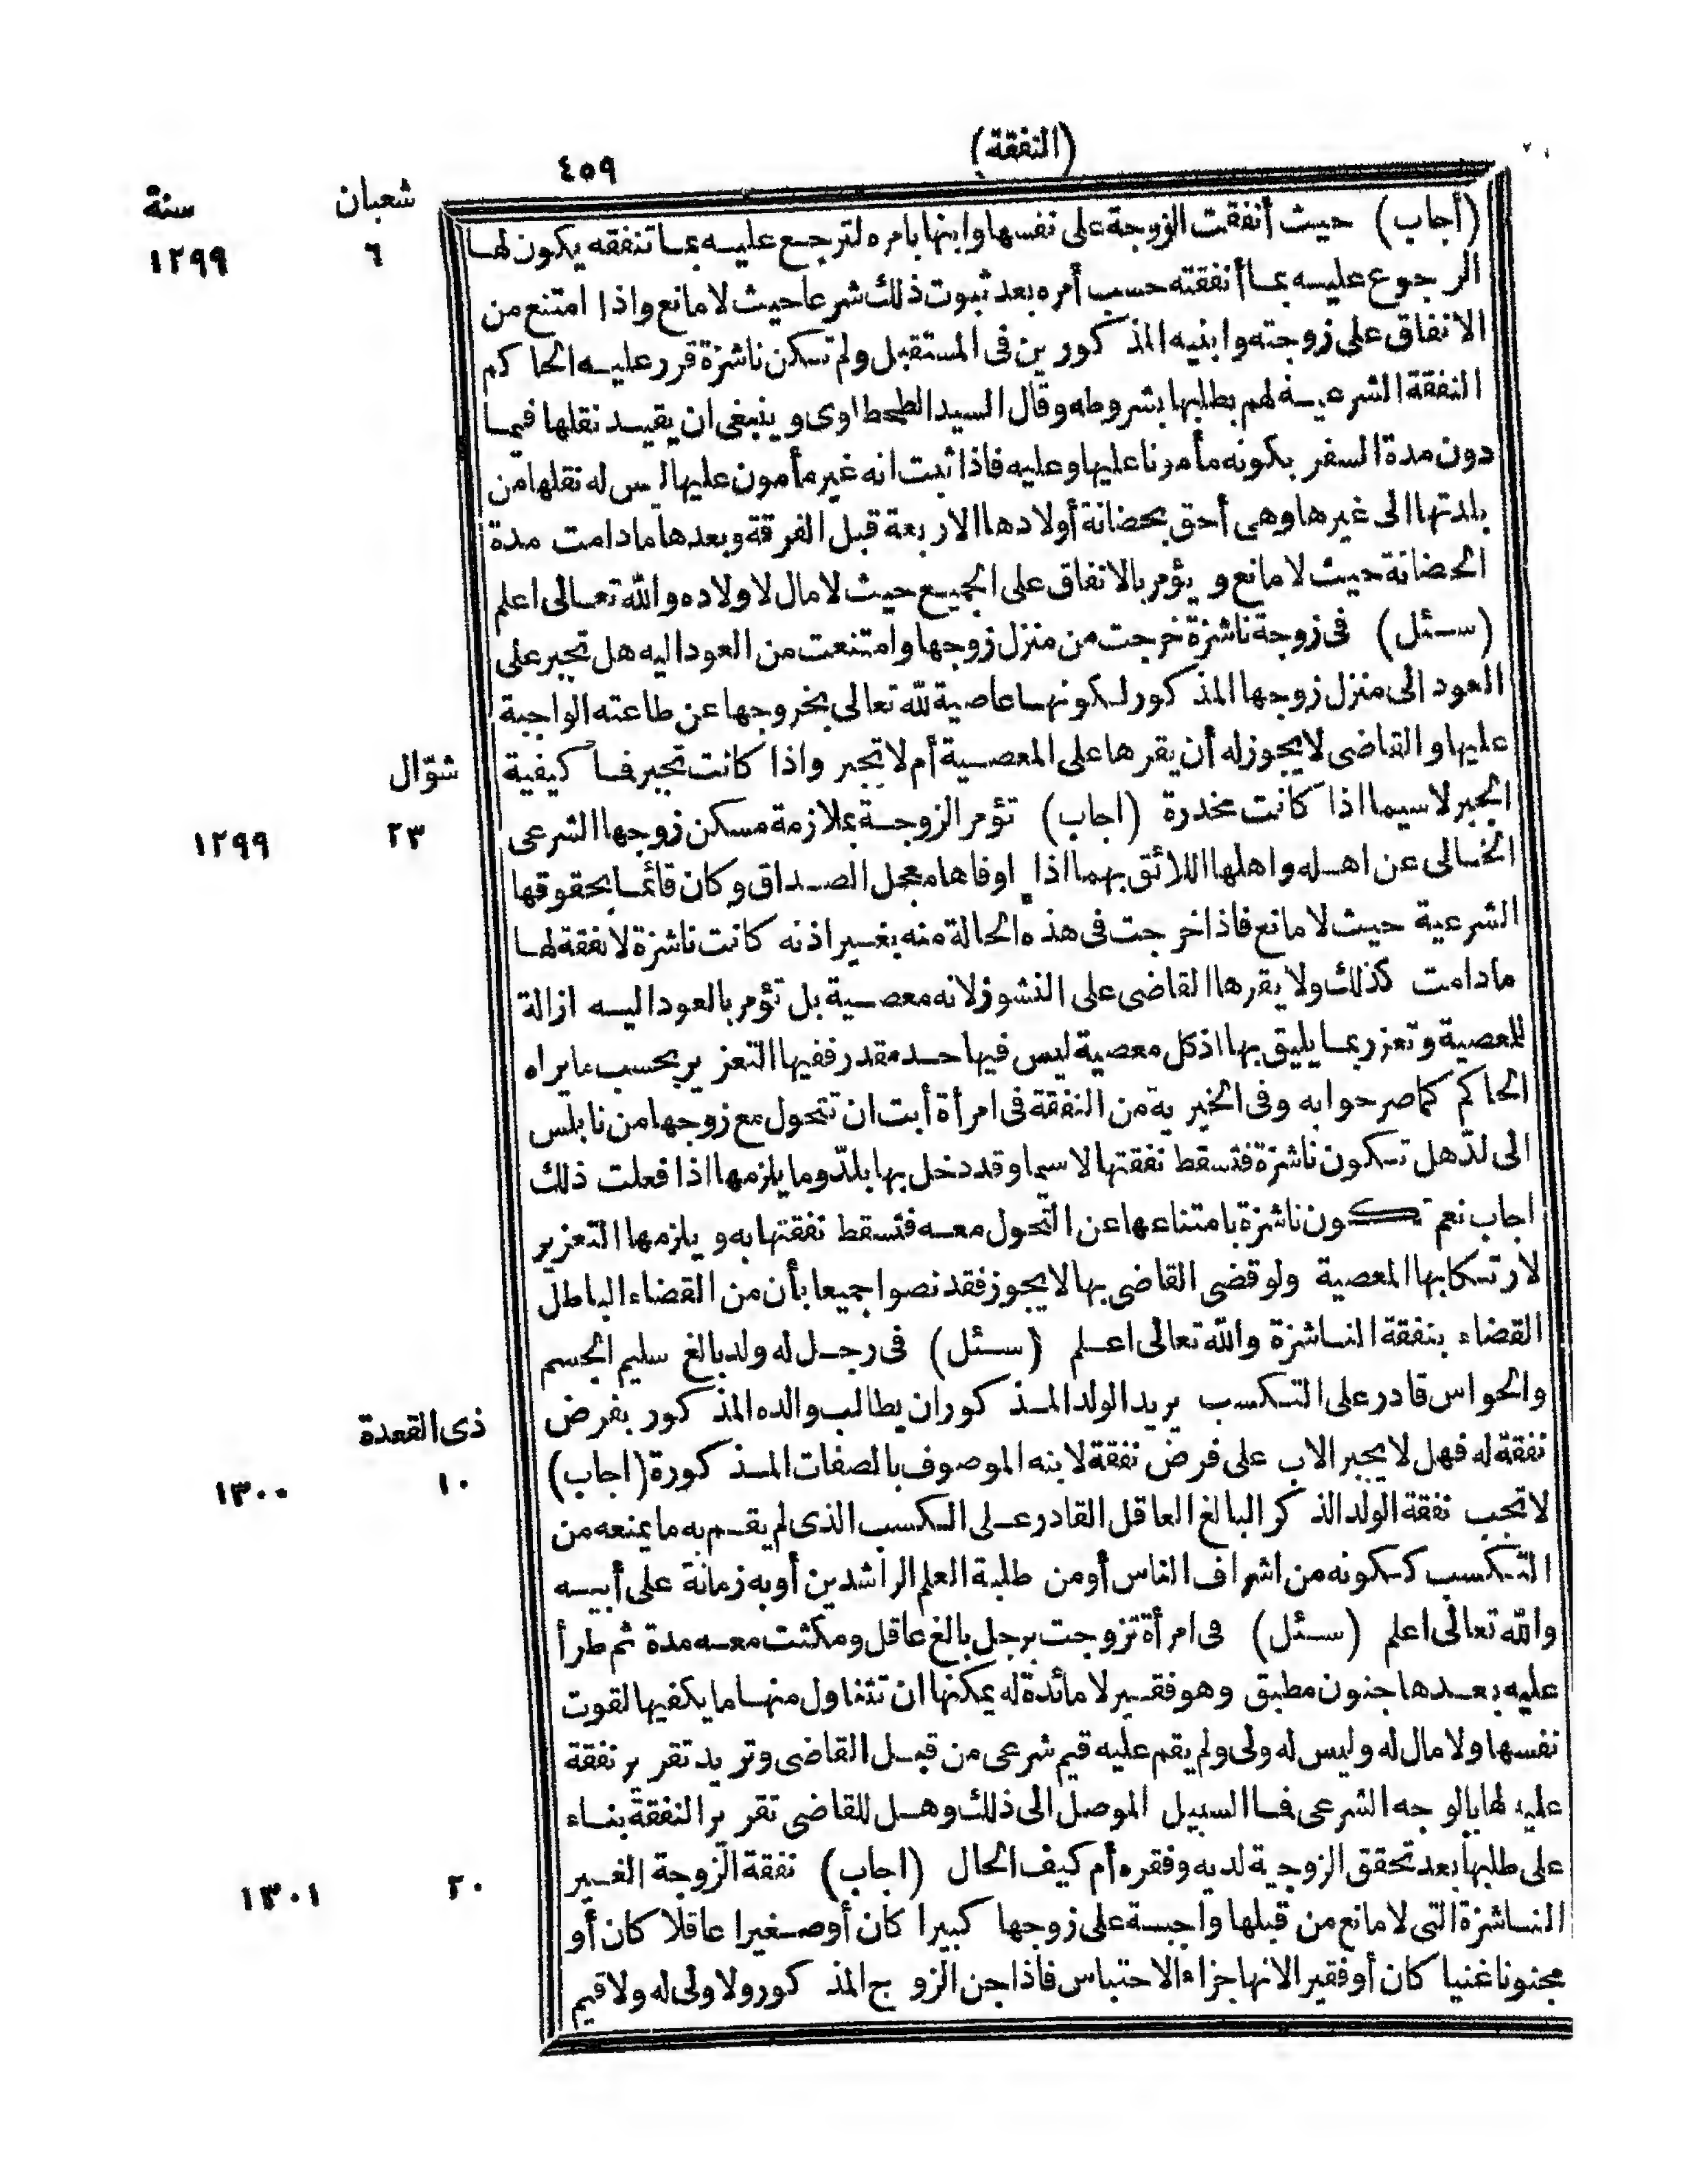 (النفقة)
٤٥٩
شعبان
سنة
٦
١٢٩٩
(أجاب) حيث أنفقت الزوجة على نفسها وابنها بامره لترجع عليه بما تنفقه يكون لها
الرجوع عليه بما أنفقته حسب أمره بعد ثبوت ذلك شرعا حيث لا مانع واذا امتنع من
الانفاق على زوجته وابنيه المذكورين فى المستقبل ولم تكن ناشزة قرر عليه الحاكم
النفقة الشرعية لهم بطلبها بشروطه وقال السيد الطحطاوى وينبغى ان يقيد نقلها فيما
دون مدة السفر بكونه مأمونا عليها وعليه فاذا ثبت انه غير مأمون عليها ليس له نقلها من
بلدتها الى غيرها وهى أحق بحضانة أولادها الاربعة قبل الفرقة وبعدها مادامت مدة
الحضانة حيث لا مانع ويؤمر بالانفاق على الجميع حيث لا مال لاولاده والله تعالى اعلم
(سئل) فى زوجة ناشزة خرجت من منزل زوجها وامتنعت من العود اليه هل تجبر على
العود الى منزل زوجها المذكور لكونها عاصية لله تعالى بخروجها عن طاعته الواجبة
عليها والقاضى لا يجوز له أن يقرها على المعصية أم لا تجبر واذا كانت تجبر فما كيفية
شوّال
الجبر لاسيما اذا كانت مخدرة (اجاب) تؤمر الزوجة بملازمة مسكن زوجها الشرعى
٢٣
١٢٩٩
الخالى عن اهله واهلها اللائق بهما اذا اوفاها معجل الصداق وكان قائما بحقوقها
الشرعية حيث لا مانع فاذا خرجت فى هذه الحالة منه بغير اذنه كانت ناشزة لا نفقة لها
مادامت كذلك ولا يقرها القاضى على النشوز لانه معصية بل تؤمر بالعود اليه ازالة
للمعصية وتعزر بما يليق بها اذ كل معصية ليس فيها حد مقدر ففيها التعزير بحسب ما يراه
الحاكم كما صرحوا به وفى الخيرية من النفقة فى امرأة أبت ان تتحول مع زوجها من نابلس
الى لدّ هل تكون ناشزة فتسقط نفقتها لاسيما وقد دخل بها بلدّ وما يلزمها اذا فعلت ذلك
اجاب نعم تكون ناشزة بامتناعها عن التحول معه فتسقط نفقتها به ويلزمها التعزير
لارتكابها المعصية ولو قضى القاضى بها لا يجوز فقد نصوا جميعا بأن من القضاء الباطل
القضاء بنفقة الناشزة والله تعالى اعلم (سئل) فى رجل له ولد بالغ سليم الجسم
والحواس قادر على التكسب يريد الولد المذكور ان يطالب والده المذكور بفرض
ذى القعدة
نفقة له فهل لا يجبر الاب على فرض نفقة لابنه الموصوف بالصفات المذكورة (اجاب)
١٠
١٣٠٠
لا تجب نفقة الولد الذكر البالغ العاقل القادر على الكسب الذى لم يقم به ما يمنعه من
التكسب ككونه من اشراف الناس أو من طلبة العلم الراشدين أو به زمانة على أبيه
والله تعالى اعلم (سئل) فى امرأة تزوجت برجل بالغ عاقل ومكثت معه مدة ثم طرأ
عليه بعدها جنون مطبق وهو فقير لا مائدة له يمكنها ان تتناول منها ما يكفيها لقوت
نفسها ولا مال له وليس له ولى ولم يقم عليه قيم شرعى من قبل القاضى وتريد تقرير نفقة
عليه لها بالوجه الشرعى فما السبيل الموصل الى ذلك وهل للقاضى تقرير النفقة بناء
على طلبها بعد تحقق الزوجية لديه وفقره أم كيف الحال (اجاب) نفقة الزوجة الغير
٢٠
١٣٠١
الناشزة التى لا مانع من قبلها واجبة على زوجها كبيرا كان أو صغيرا عاقلا كان أو
مجنونا غنيا كان أو فقيرا لانها جزاء الاحتباس فاذا جن الزوج المذكور ولا ولى له ولا قيم